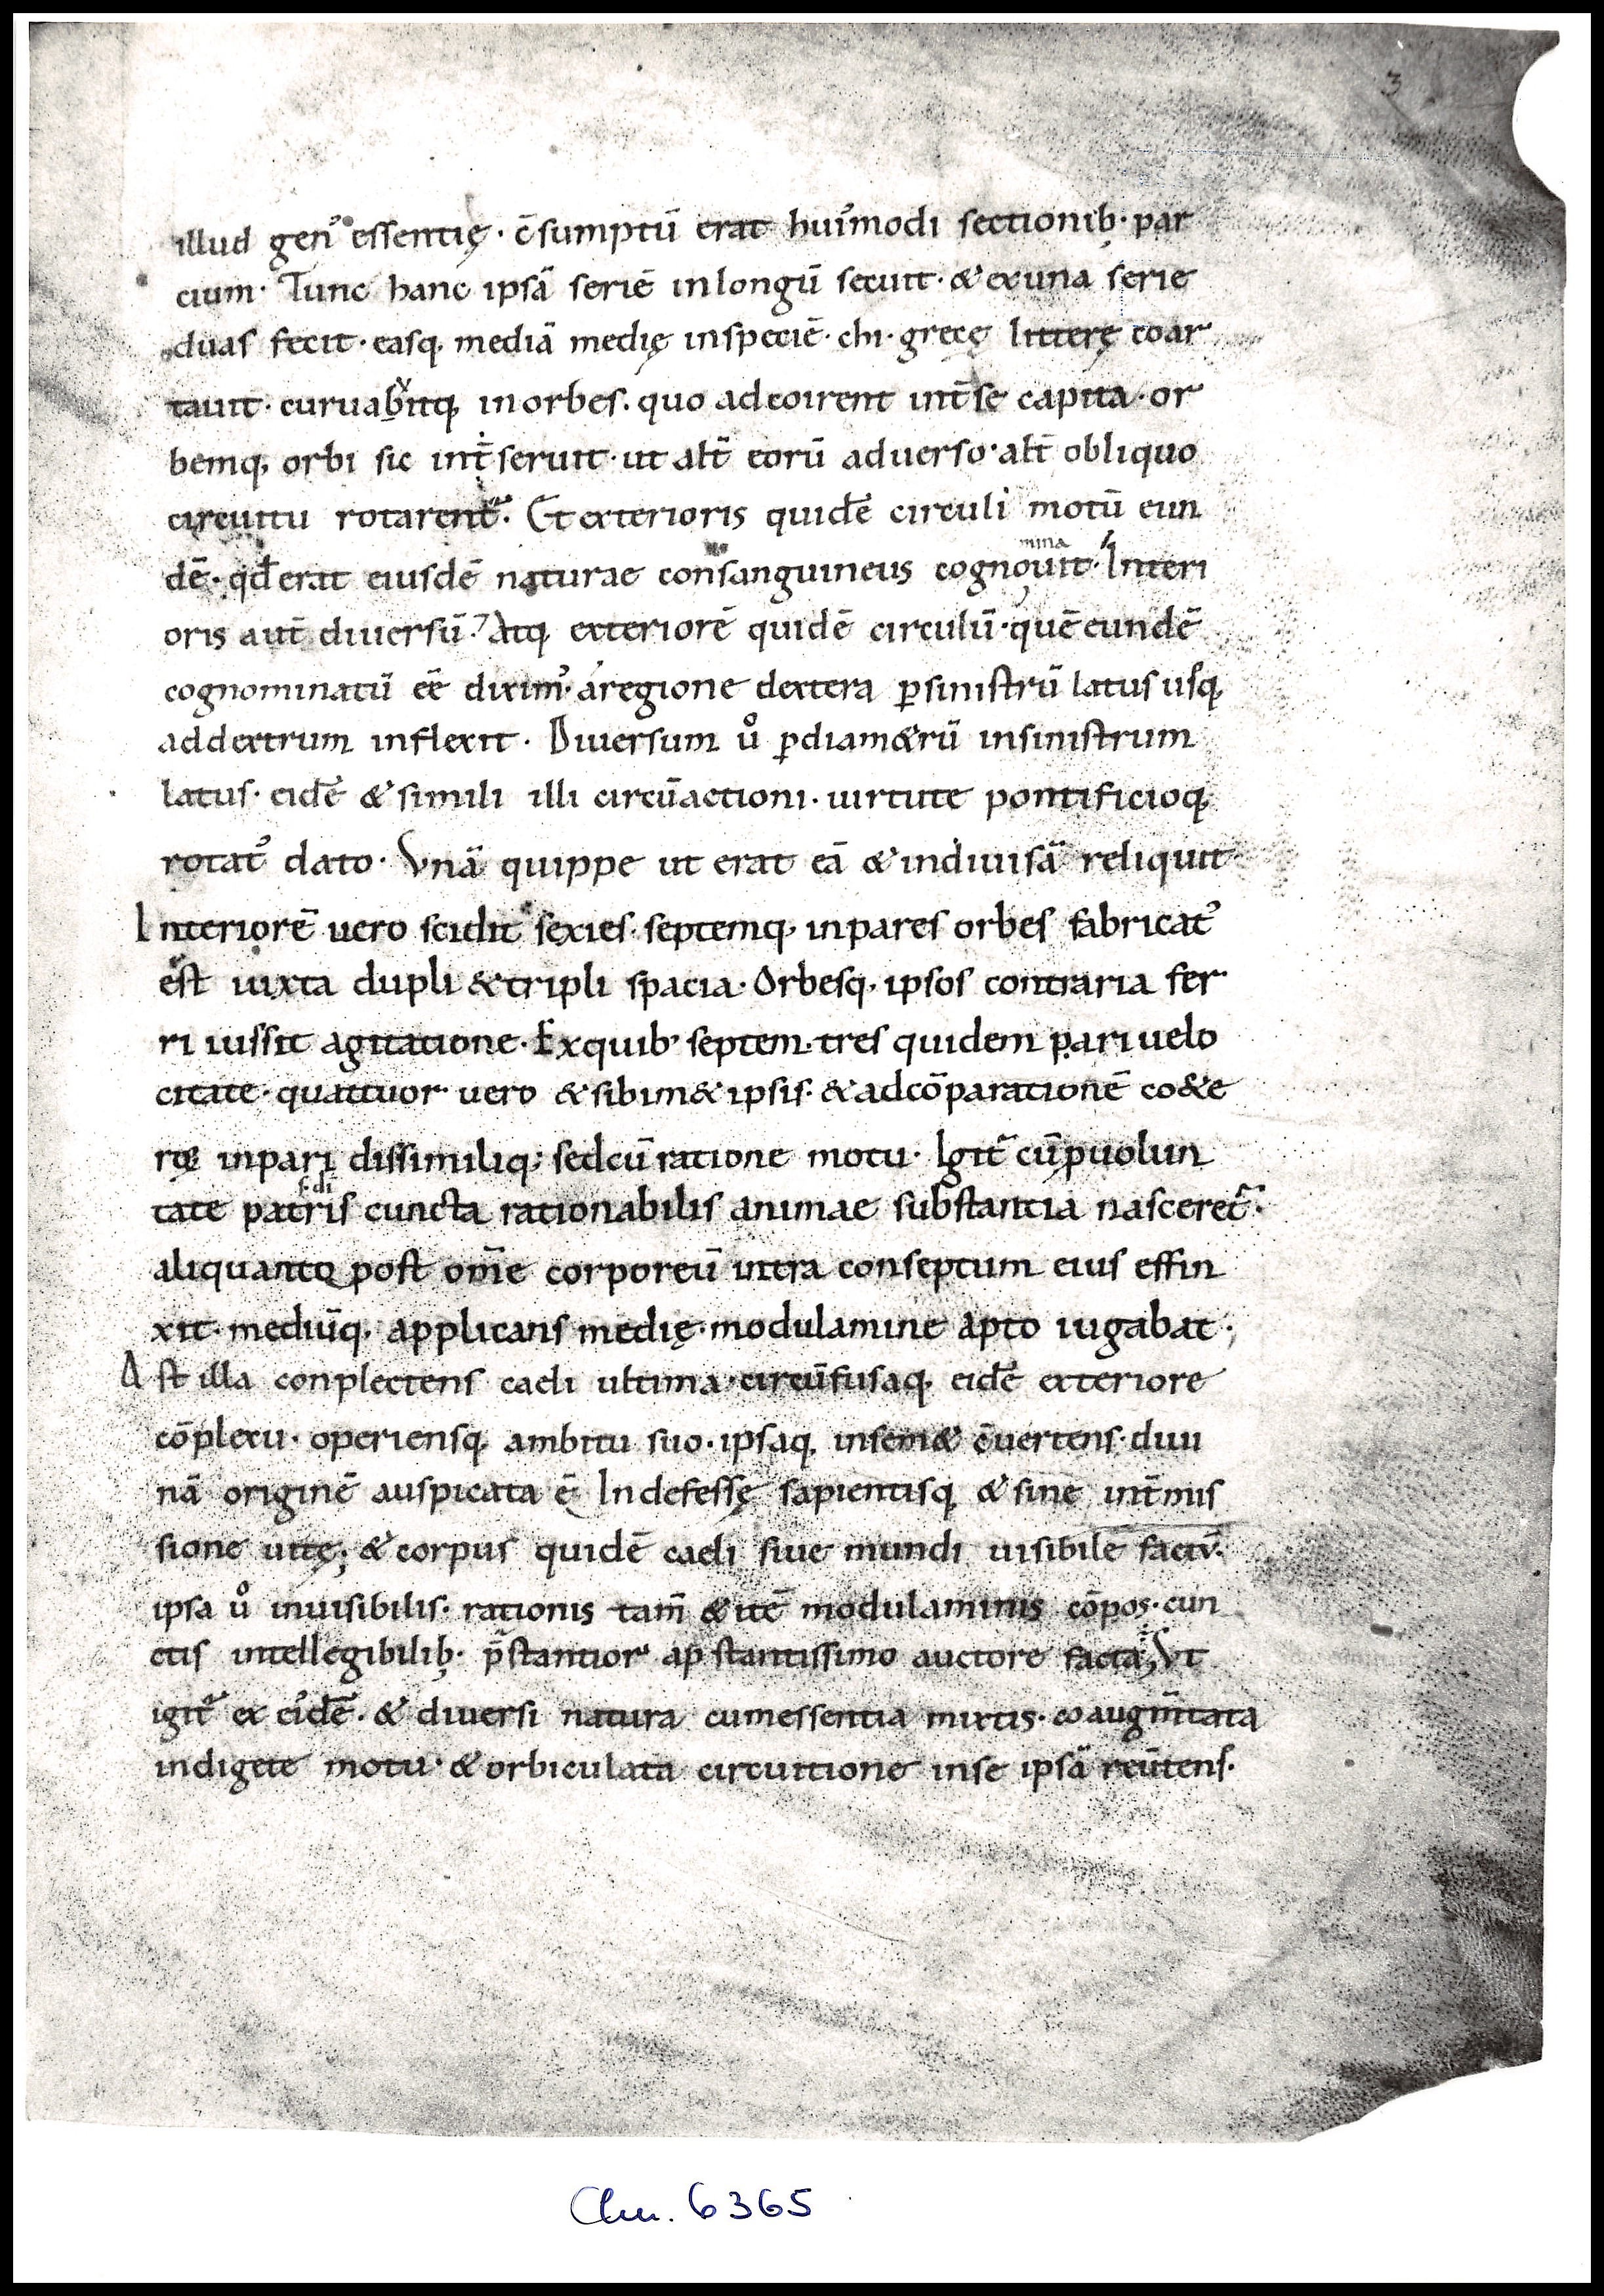 3
illud gen᾽ essentię · c̄sumptū erat hui᾽modi sectionib· par
cium · Tunc hanc ipsā seriē inlongū secuit · & exuna serie
duas fecit · easq; mediā medię inspeciē · chi · grecę litterę coar
tauit · curuabitq; inorbes · quo adcoirent int̄se capita · or
bemq; orbi sic int̄seruit · ut alt̄ eorū aduerso · alt̄ obliquo
circuitu rotarent̄ · Et exterioris quidē circuli motū eun
dē · qd̄ erat eiusdē naturae consanguineus cognouit · Interi
mina
oris aut̄ diuersū · Atq; exteriorē quidē circulū · quē eundē
cognominatū eē dixim᾽ · aregione dextera ꝑsinistrū latus usq;
addextrum inflexit · Diuersum ů ꝑdiam&rū insinistrum
latus · eidē & simili illi circūactioni · uirtute pontificioq;
rotat᾽ dato · Vnā quippe ut erat eā & indiuisā reliquit
Interiorē uero scidit sexies · septemq; inpares orbes fabricat᾽
est iuxta dupli & tripli spacia · Orbesq; ipsos contraria fer
ri iussit agitatione · Exquib᾽ septem · tres quidem pari uelo
citate · quattuor uero & sibim& ipsis · & adcōparationē co&e
rorę inpari dissimiliq; sedcū ratione motu · Igit̄ cū ꝑuolun
s· di
tate patris cuncta rationabilis animae substantia nasceret̄ ·
aliquanto post om̄e corporeū intra conseptum eius effin
xit · mediūq; applicans medię · modulamine apto iugabat ;
Ast illa conplectens caeli ultima · circūfusaq; eidē exteriore
cōplexu · operiensq; ambitu suo · ipsaq; insem& c̄uertens · diui
nā originē auspicata ē; Indefessę sapientisq; & sine int̄mis
sione uitę; & corpus quidē caeli siue mundi uisibile factū ·
ipsa ů inuisibilis · rationis tam̄ & itē modulaminis cōpos · cun
ctis intellegibilib; p̄stantior ap̄stantissimo auctore facta; Vt
igit̄ ex eidē · & diuersi natura cumessentia mixtis · coaugm̄tata
indigete motu · & orbiculata circuitione inse ipsā reūtens ·
Clm. 6365